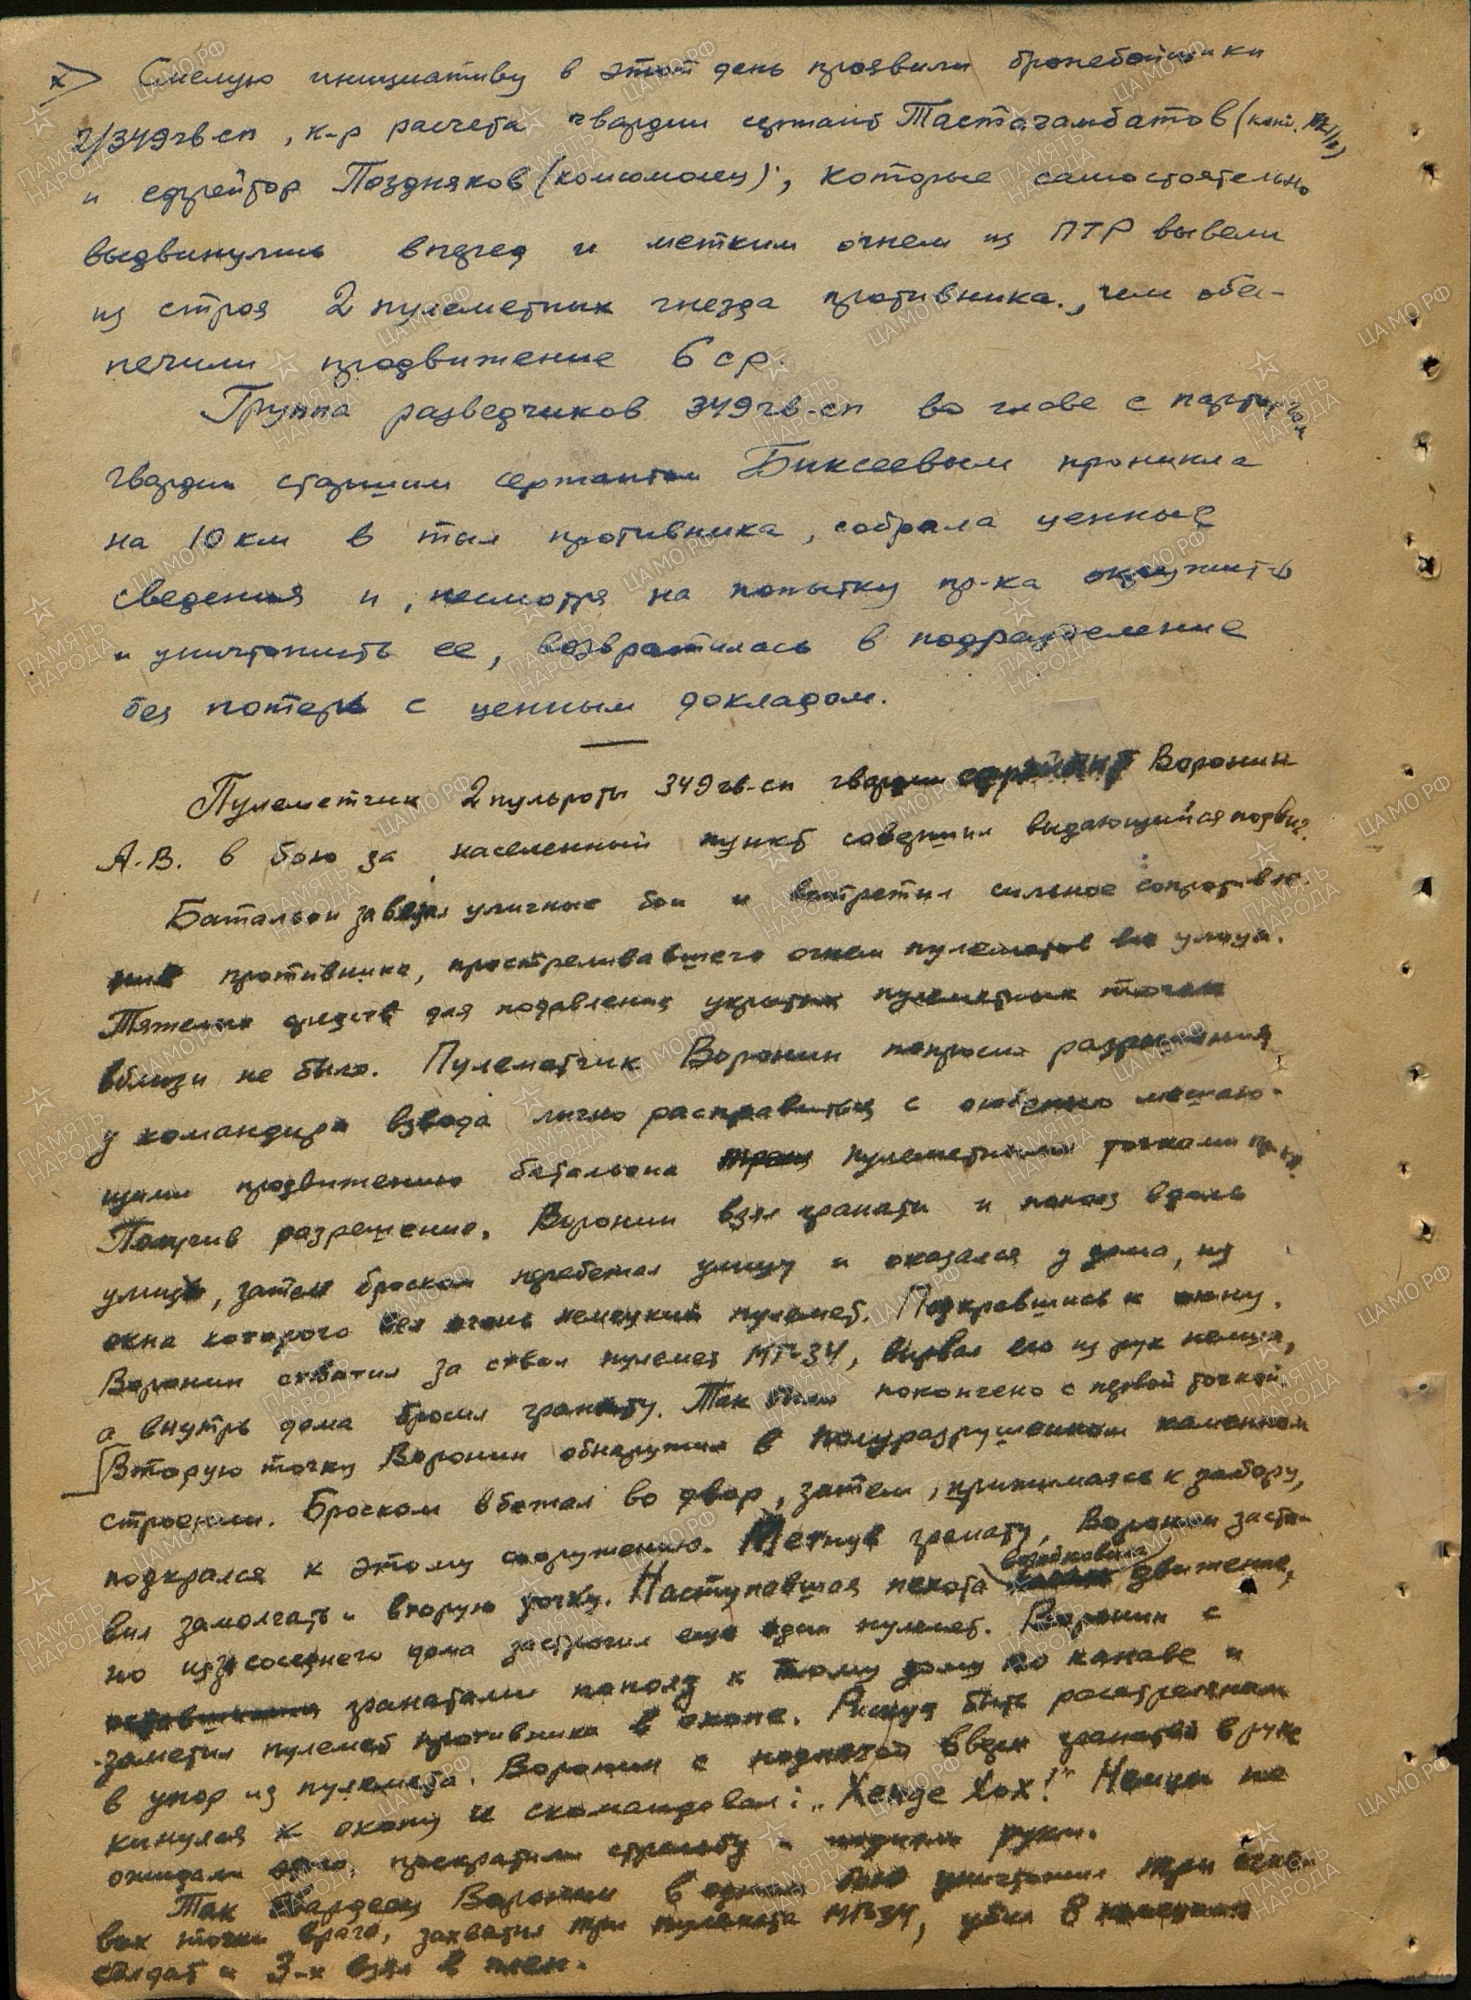 х) Смелую инициативу в этот день проявили бронебойщики
2/349 гв. сп, к-р расчета гвардии сержант Тастагамбатов (канд.
и ефрейтор Поздняков (комсомолец), которые самостоятельно
выдвинулись вперед и метким огнем из ПТР вывели
из строя 2 пулеметных гнезда противника., чем обес-
печили продвижение 6 ср.
Группа разведчиков 349 гв. сп во главе с парторгом
гвардии старшим сержантом Биксеевым проникла
на 10 км в тыл противника, собрала ценные
сведения и, несмотря на попытку пр-ка окружить
и уничтожить ее, возвратилась в подразделение
без потерь с ценным докладом.
Пулеметчик 2 пульроты 349 гв. сп гвардии Воронин
А.В. в бою за населенный пункт совершил выдающийся подвиг.
Батальон завязал уличные бои и встретил сильное сопротивле-
ние противника, простреливавшего огнем пулеметов всю улицу.
Тяжелых средств для подавления укрытых пулеметных точек
вблизи не было. Пулеметчик Воронин попросил разрешения
у командира взвода лично расправиться с особенно мешаю-
щими продвижению батальона пулеметными точками
Получив разрешение, Воронин взял гранаты и пополз вдоль
улицы, затем броском перебежал улицу и оказался у дома, из
окна которого вел огонь немецкий пулемет. Подкравшись к окну,
Воронин схватил за ствол пулемет МГ-34, вырвал его из рук немца,
а внутрь дома бросил гранату. Так было покончено с первой точкой.
Вторую точку Воронин обнаружил в полуразрушенном каменном
строении. Броском вбежал во двор, затем, прижимаясь к забору,
подкрался к этому сооружению. Метнув гранату, Воронин заста-
вил замолчать и вторую точку. Наступавшая пехота возобновила движение,
но из соседнего дома застрочил еще один пулемет. Воронин с
гранатами пополз к тому дому по канаве и
заметил пулемет противника в окопе. Рискуя быть расстрелянным
в упор из пулемета, Воронин с поднятой вверх гранатой в руке
кинулся к окопу и скомандовал: „Хенде Хох!" Немцы не
ожидали этого, прекратили стрельбу и подняли руки.
Так гвардеец Воронин в одном бою уничтожил три огне-
вых точки врага, захватил три пулемета МГ-34, убил 8 немецких
солдат и 3-х взял в плен.